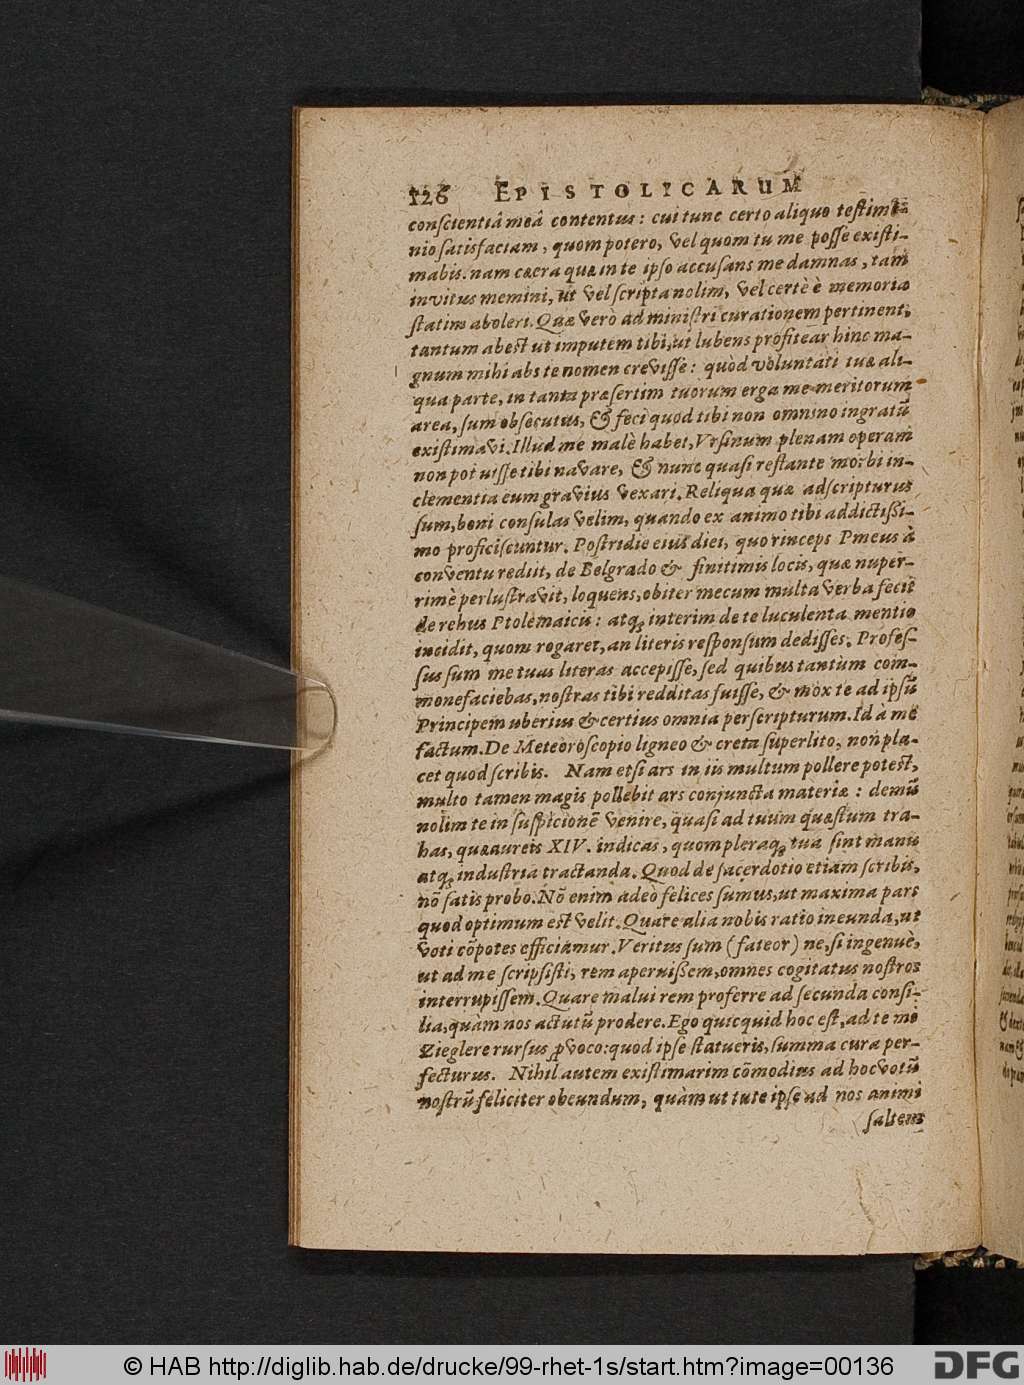 126 EPISTOLICARUM
conscientiâ meâ contentus: cui tunc certo aliquo testimo-
nio satisfaciam, quom potero, vel quom tu me posse existi-
mabis. nam cæera quæ in te ipso accusans me damnas, tam
invitus memini, ut vel scripta nolim, vel certè è memoria
statim aboleri. Quæ verò ad ministri curationem pertinent,
tantum abest ut imputem tibi, ut lubens profitear hinc ma-
gnum mihi abs te nomen crevisse: quòd voluntati tuæ ali-
qua parte, in tanta præsertim tuorum erga me meritorum
area, sum obsecutus, & feci quod tibi non omnino ingratũ
existimavi. Illud me malè habet, Vrsinum plenam operam
non potuisse tibi navare, & nunc quasi restante morbi in-
clementia eum gravius vexari. Reliqua quæ adscripturus
sum, boni consulas velim, quando ex animo tibi addictissi-
mo proficiscuntur. Postridie eius diei, quo rinceps Pmeus à
conventu rediit, de Belgrado & finitimis locis, quæ nuper-
rimè perlustravit, loquens, obiter mecum multa verba fecit
de rebus Ptolemaicis: atq; interim de te luculenta mentio
incidit, quom rogaret, an literis responsum dedisses. Profes-
sus sum me tuas literas accepisse, sed quibus tantùm com-
monefaciebas, nostras tibi redditas fuisse, & mox te ad ipsũ
Principem uberius & certius omnia perscripturum. Id à me
factum. De Meteoroscopio ligneo & creta superlito, non pla-
cet quod scribis. Nam etsi ars in iis multum pollere potest,
multo tamen magis pollebit ars conjuncta materiæ: demũ
nolim te in suspicionẽ venire, quasi ad tuum quæstum tra-
has, quæ aureis XIV. indicas, quom pleraq; tua sint manu
atq; industria tractanda. Quod de sacerdotio etiam scribis,
nõ satis probo. Nõ enim adeò felices sumus, ut maxima pars
quod optimum est velit. Quare alia nobis ratio ineunda, ut
voti cõpotes efficiamur. Veritus sum (fateor) ne, si ingenuè,
ut ad me scripsisti, rem aperuissem, omnes cogitatus nostros
interrupissem. Quare malui rem proferre ad secunda consi-
lia, quàm nos actutũ prodere. Ego quicquid hoc est, ad te mi
Zieglere rursus ꝓvoco: quod ipse statueris, summa cura per-
fecturus. Nihil autem existimarim cõmodius ad hoc votũ
nostrũ feliciter obeundum, quàm ut tute ipse ad nos animi
saltem
© HAB http://diglib.hab.de/drucke/99-rhet-1s/start.htm?image=00136
DFG